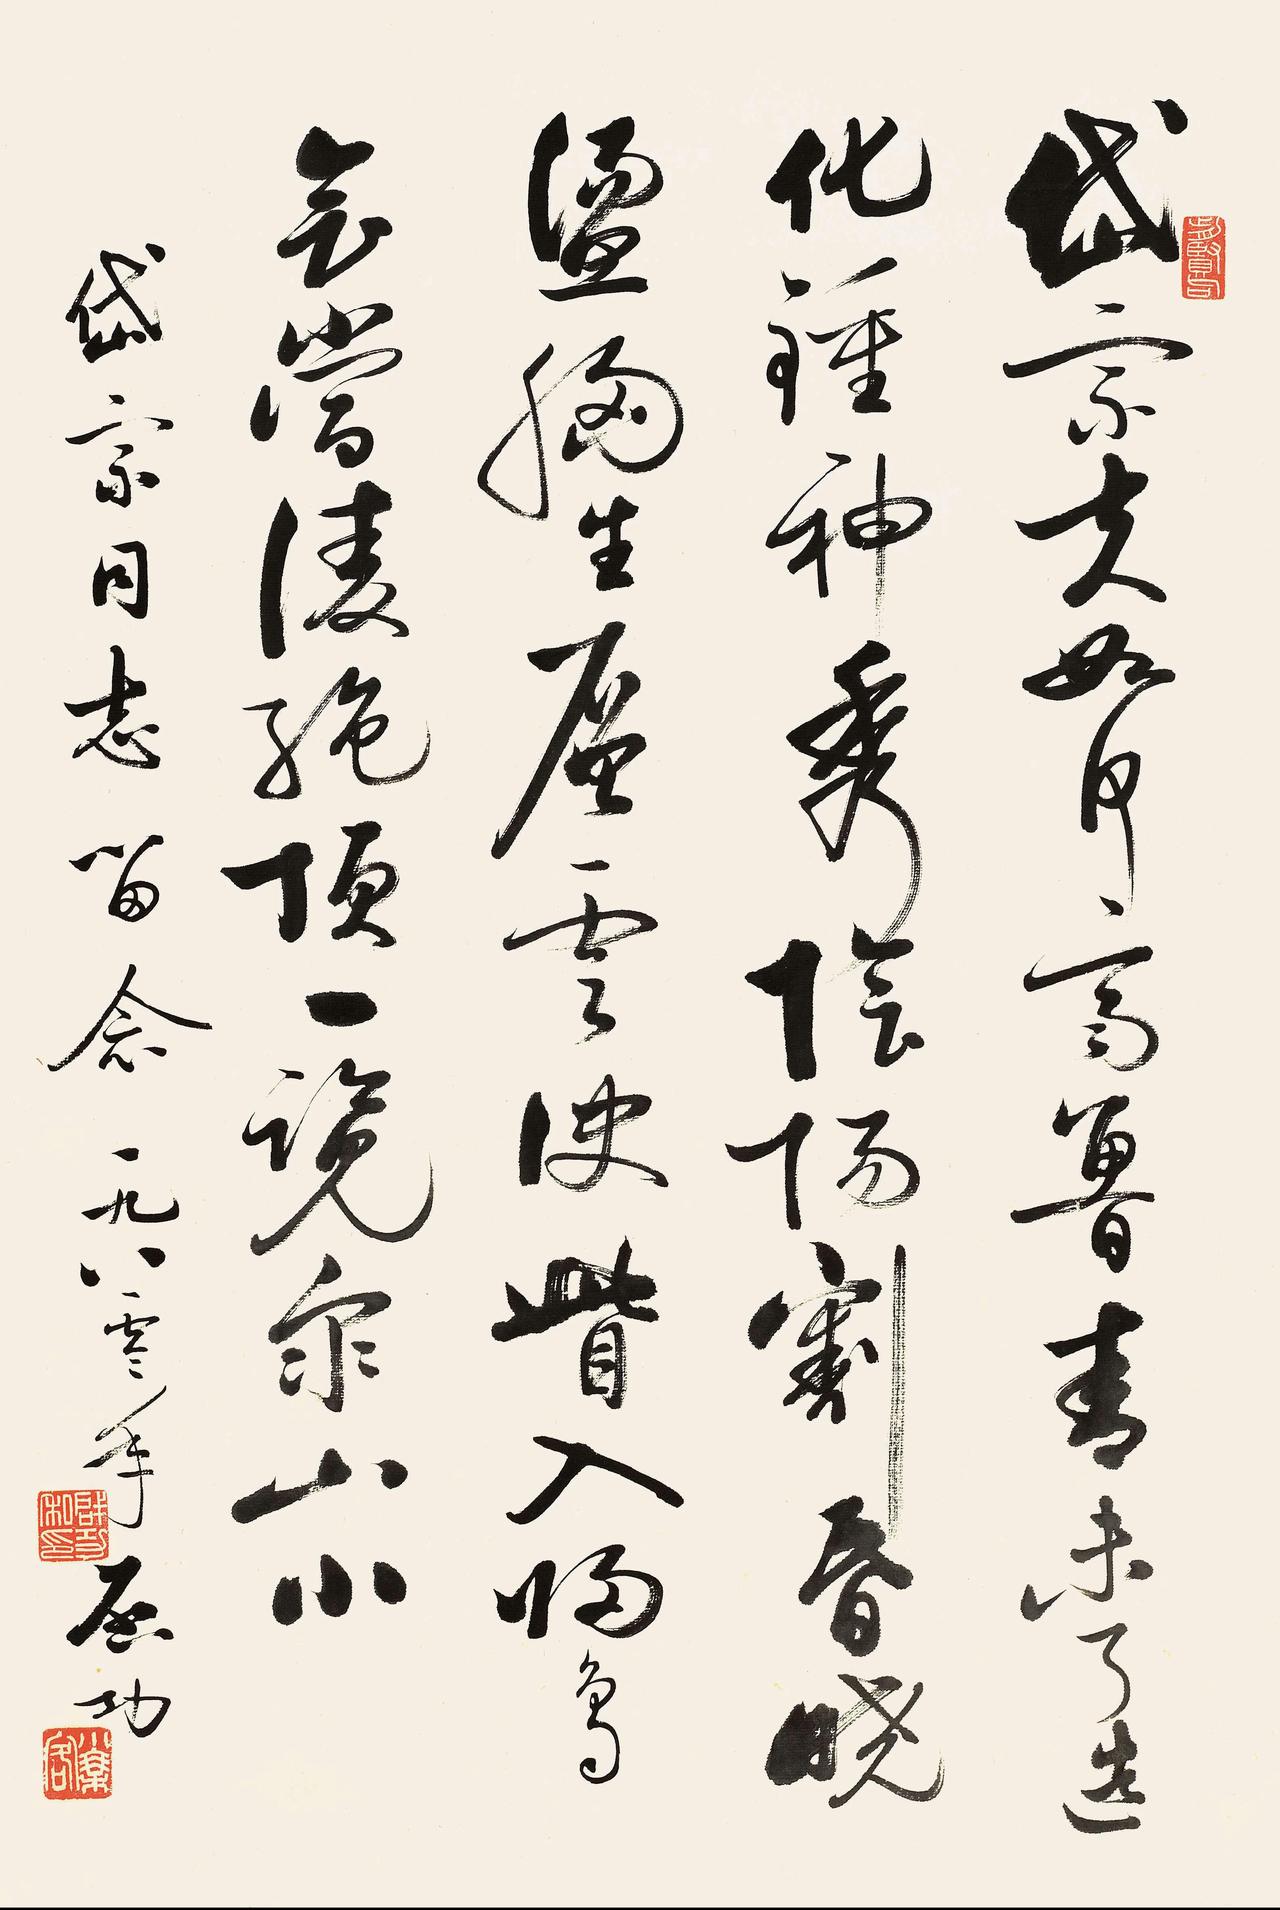 岱宗夫如何齊魯青未了造
化鍾神秀陰陽割昏曉
盪胸生層雲決眥入歸鳥
會當凌絕頂一覽眾山小
岱宗同志留念一九八零年啟功